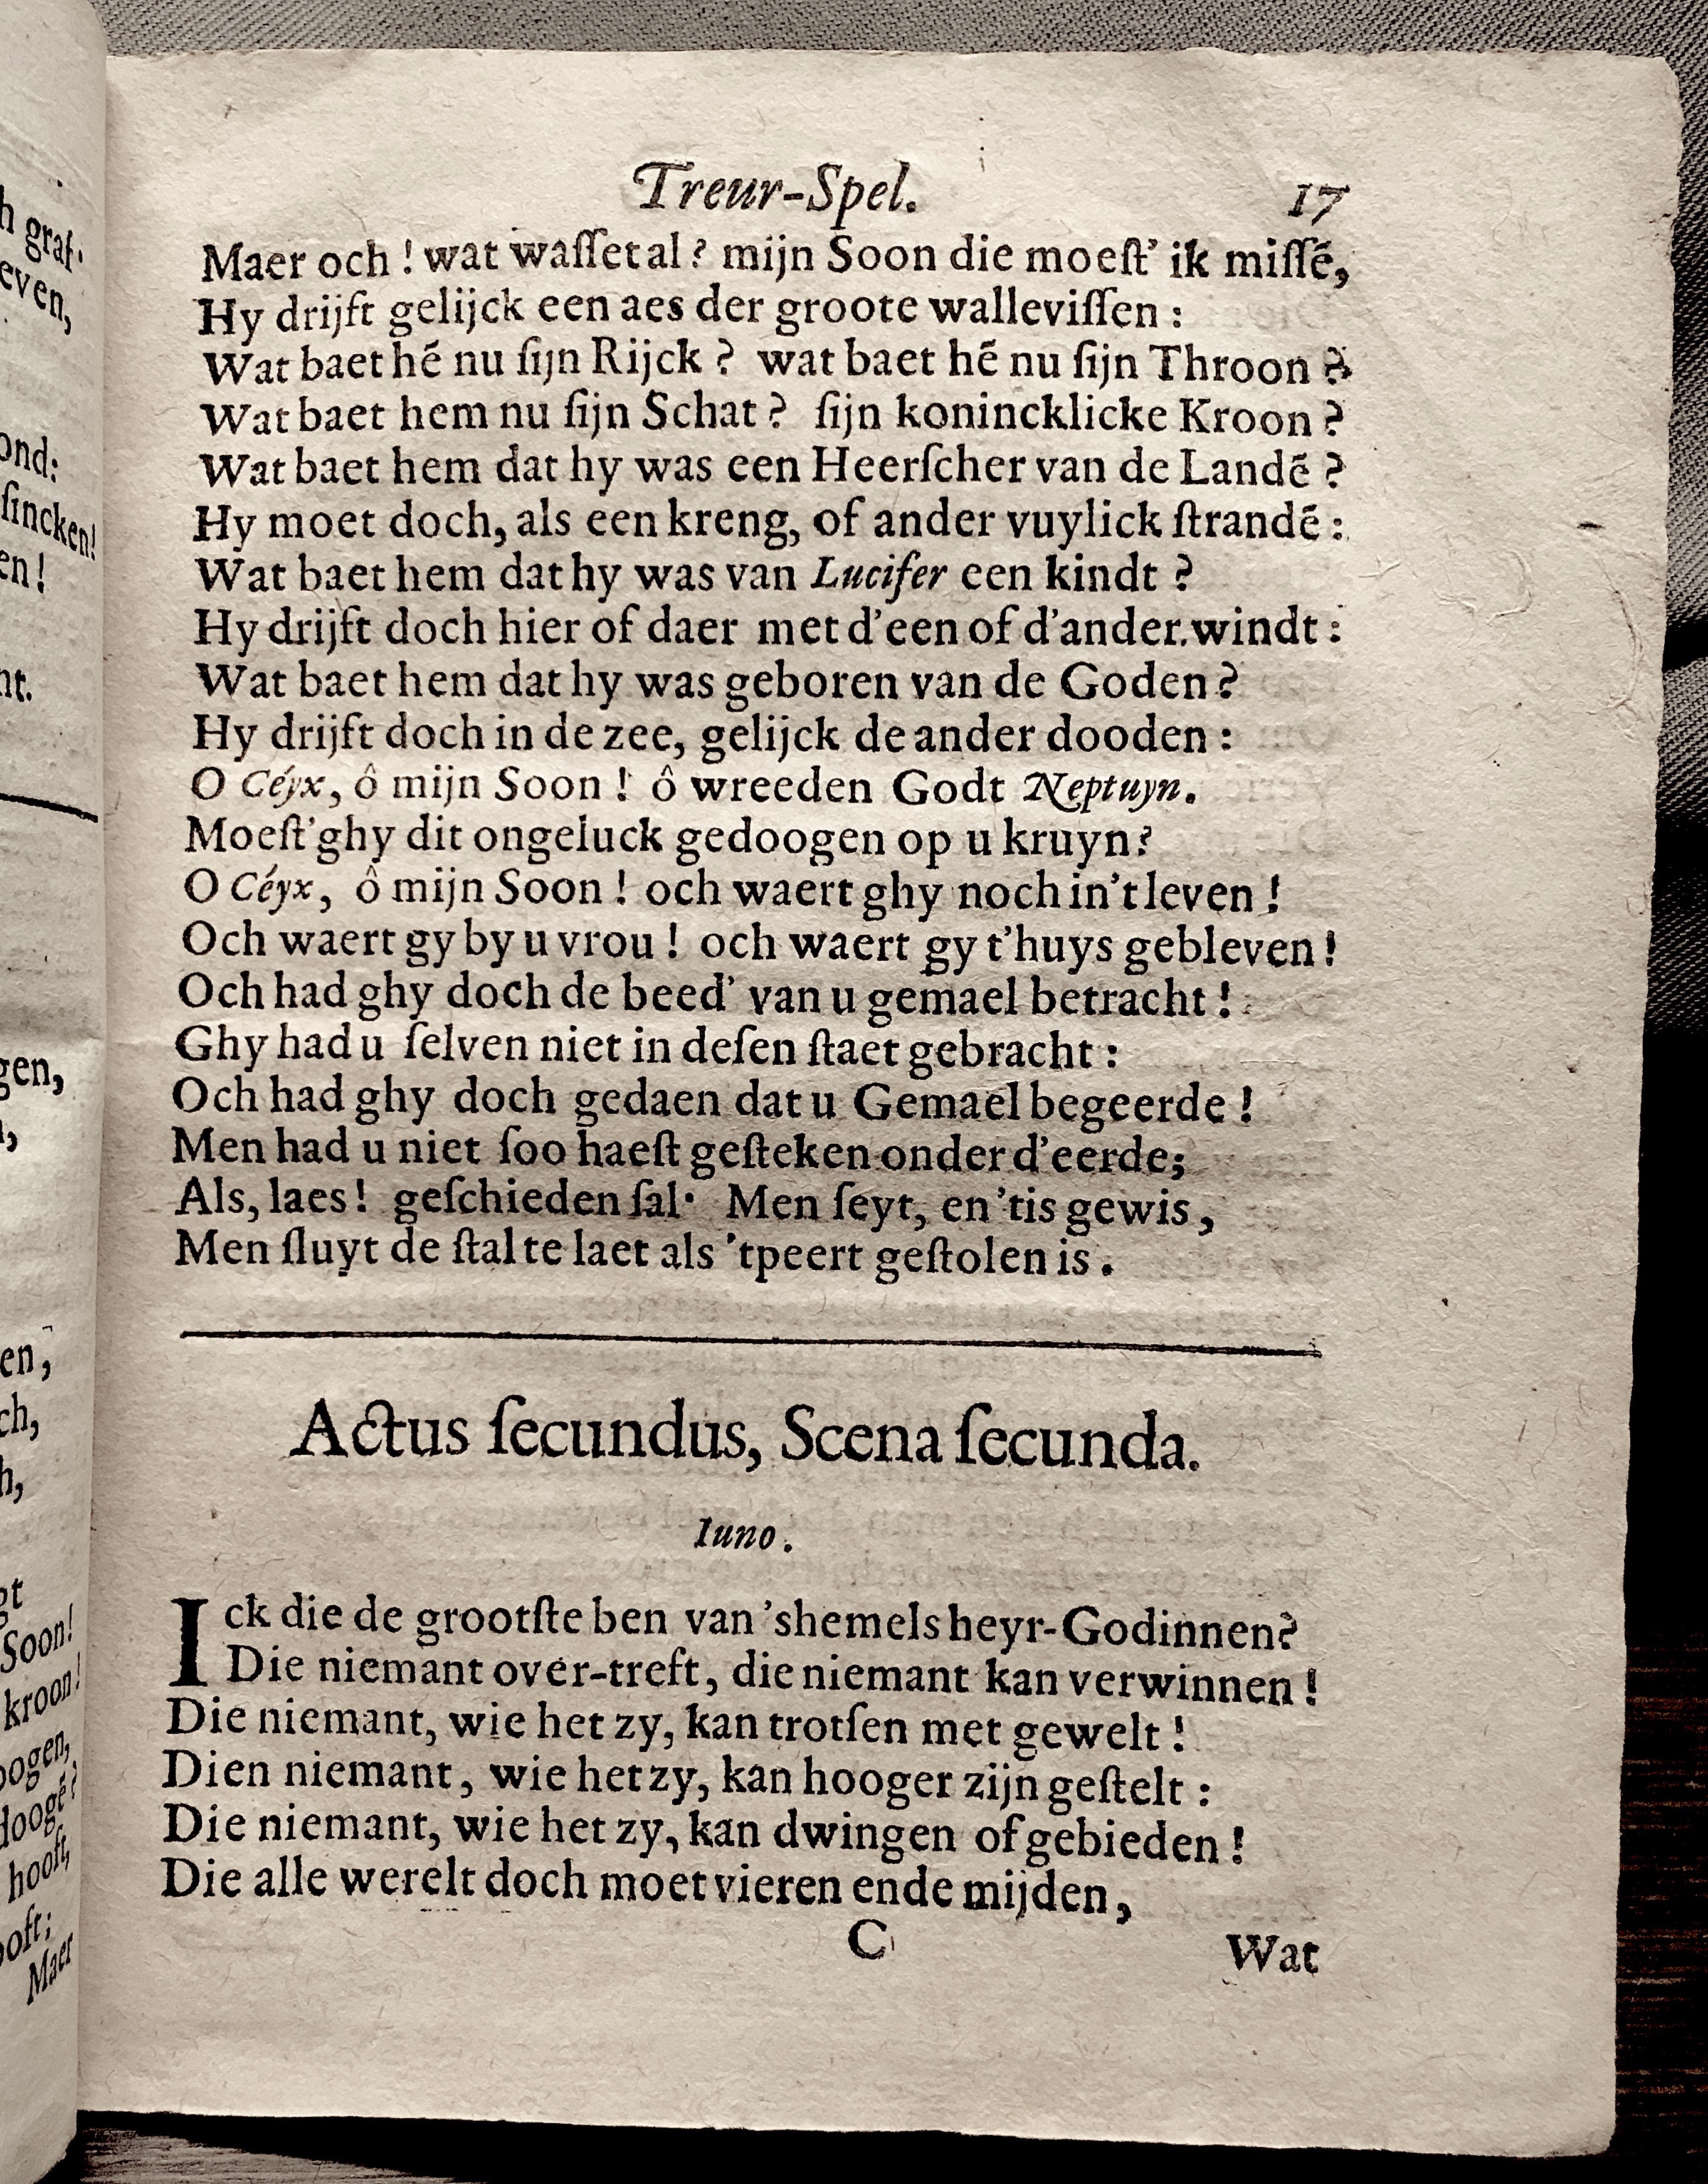 Treur-Spel. 17
Maer och ! wat waſſet al ? mijn Soon die moeſt' ik miſſē,
Hy drijft gelijck een aes der groote walleviſſen :
Wat baet hē nu ſijn Rijck ? wat baet hē nu ſijn Throon ?
Wat baet hem nu ſijn Schat ? ſijn konincklicke Kroon ?
Wat baet hem dat hy was een Heerſcher van de Landē ?
Hy moet doch, als een kreng, of ander vuylick ſtrandē :
Wat baet hem dat hy was van Lucifer een kindt ?
Hy drijft doch hier of daer met d'een of d'ander.windt :
Wat baet hem dat hy was geboren van de Goden ?
Hy drijft doch in de zee, gelijck de ander dooden :
O Céyx, ô mijn Soon ! ô wreeden Godt Neptuyn.
Moeſt'ghy dit ongeluck gedoogen op u kruyn ?
O Céyx, ô mijn Soon ! och waert ghy noch in't leven !
Och waert gy by u vrou ! och waert gy t'huys gebleven !
Och had ghy doch de beed' van u gemael betracht !
Ghy had u ſelven niet in deſen ſtaet gebracht :
Och had ghy doch gedaen dat u Gemael begeerde !
Men had u niet ſoo haeſt geſteken onder d'eerde;
Als, laes ! geſchieden ſal· Men ſeyt, en 'tis gewis,
Men ſluyt de ſtal te laet als 'tpeert geſtolen is.
Actus ſecundus, Scena ſecunda.
Iuno.
Ick die de grootſte ben van 'shemels heyr-Godinnen?
Die niemant over-treft, die niemant kan verwinnen !
Die niemant, wie het zy, kan trotſen met gewelt !
Dien niemant, wie het zy, kan hooger zijn geſtelt :
Die niemant, wie het zy, kan dwingen of gebieden !
Die alle werelt doch moet vieren ende mijden,
C Wat